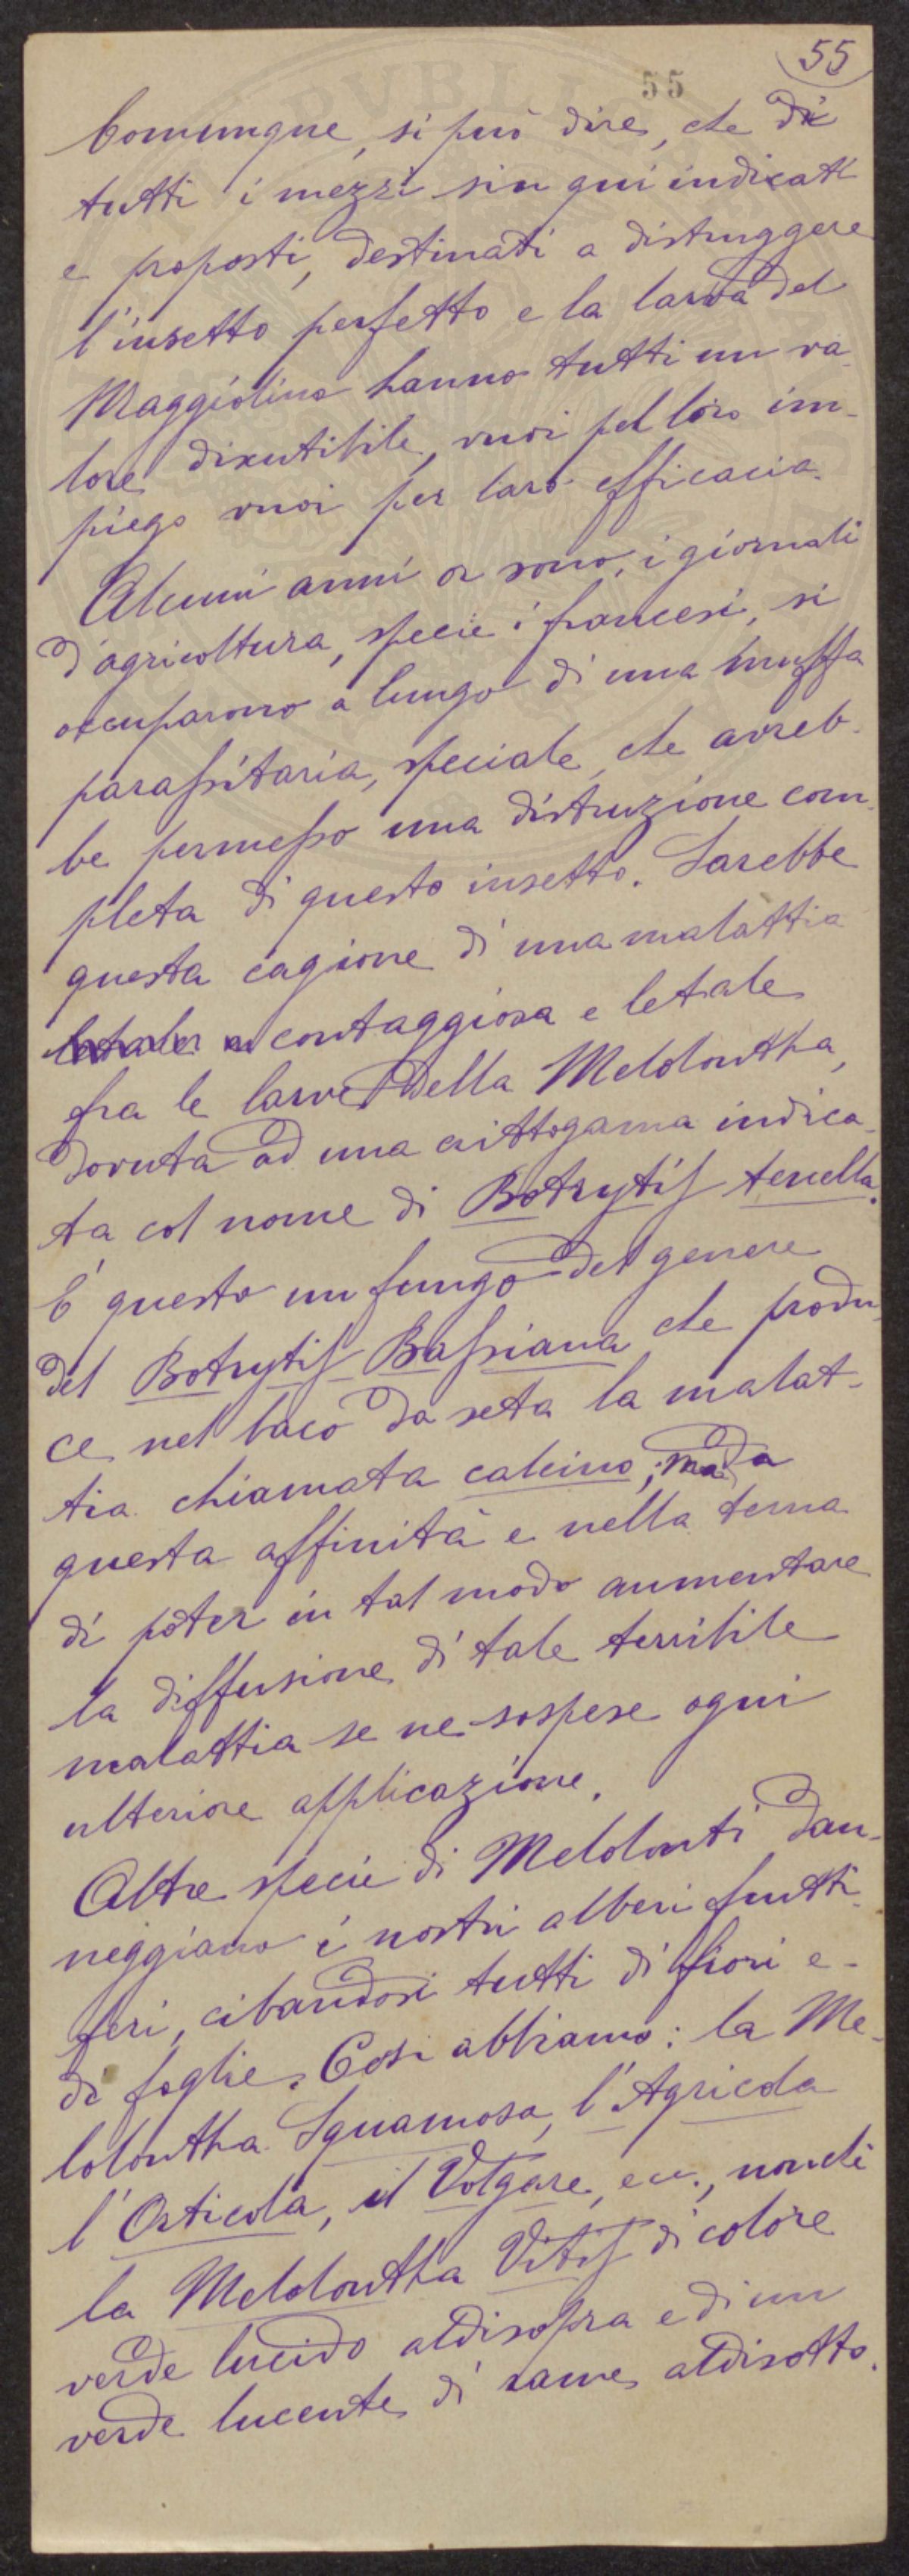 55
55
Comunque, si può dire, che di
tutti i mezzi sin qui indicati
e proposti, destinati a distruggere
l'insetto perfetto e la larva del
Maggiolino hanno tutti un va-
lore discutibile, vuoi pel loro im-
piego vuoi per loro efficacia.
Alcuni anni or sono, i giornali
d'agricoltura, specie i francesi, si
occuparono a lungo di una muffa
parassitaria, speciale, che avreb-
be permesso una distruzione com-
pleta di questo insetto. Sarebbe
questa cagione di una malattia
contaggiosa e letale
fra le larve della Melolontha,
dovuta ad una crittogama indica-
ta col nome di Botrytis tenella.
E' questo un fungo del genere
del Botrytis Bassiana che produ-
ce nel baco da seta la malat-
tia chiamata calcino; ma da
questa affinità e nella tema
di poter in tal modo aumentare
la diffusione di tale terribile
malattia se ne sospese ogni
ulteriore applicazione.
Altre specie di Melolonti dan-
neggiano i nostri alberi frutti-
feri, cibandosi tutti di fiori e
di foglie. Così abbiamo: la Me-
lolontha Squamosa, l'Agricola
l'Orticola, il Volgare, ecc., nonchè
la Melolontha Vitis di colore
verde lucido aldisopra e di un
verde lucente di rame aldisotto.